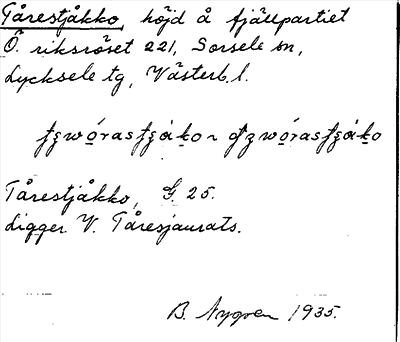 Tårestjåkko, höjd å fjällpartiet
Ö. riksröset 221, Sorsele sn,
Lycksele tg, Västerb. l.
Tårestjåkko, G. 25.
Ligger V. Tåresjaurats.
B. Nygren 1935.